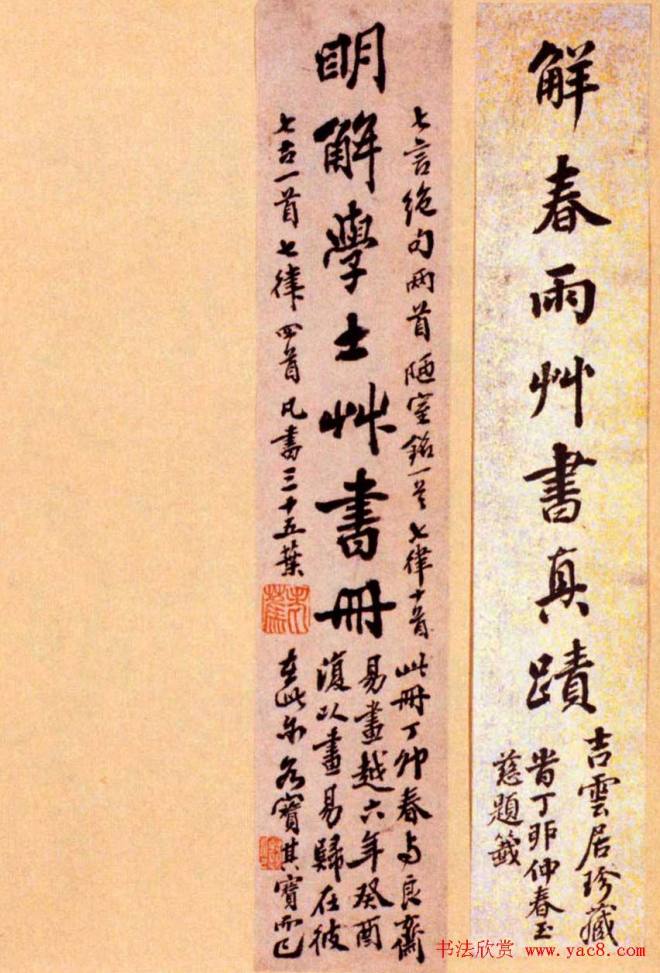 解春雨艸書真蹟
吉雲居珍藏
昔丁卯仲春玉
慈題籤
明解學士艸書冊
七言絶句兩首陋室銘一首七律十首
七古一首七律四首凡書三十五葉
此冊丁卯春与良齋
易畫越六年癸酉
復以畫易歸在彼
在此亦各寶其寶而已
书法欣赏 www.yac8.com